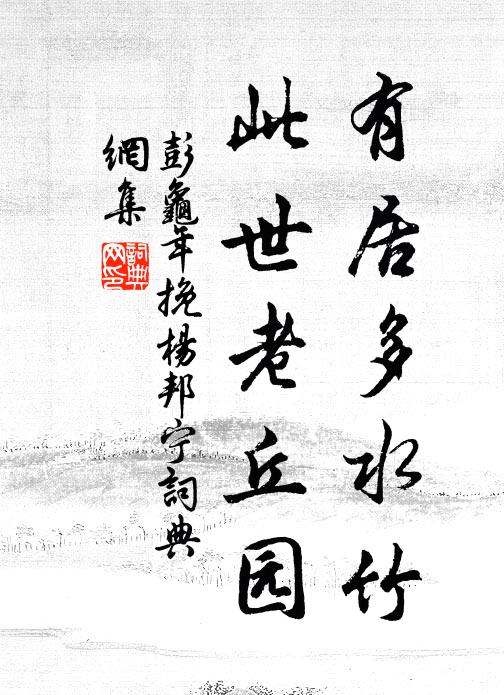 有居多水竹
此世老丘园
彭龜年挽楊邦宁詞典
網集
詞典
网印